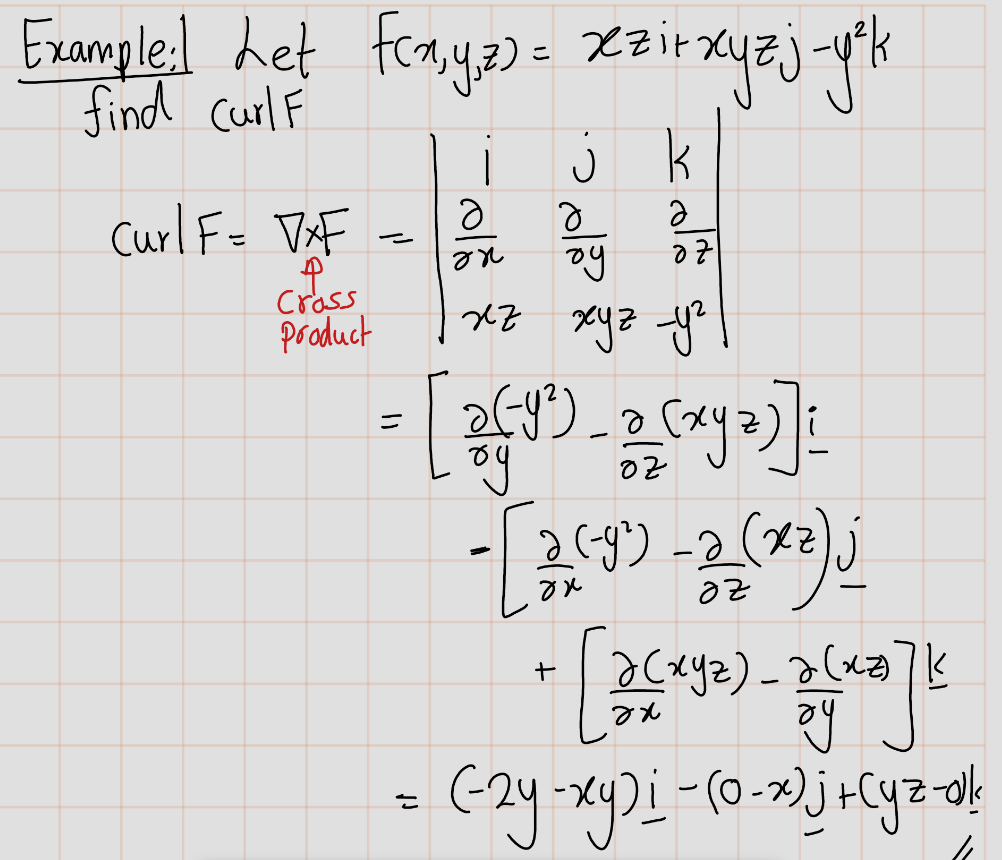 Example:| Let F(x,y,z) = xzi + xyzj - y²k
find curl F
| i j k |
curl F = ∇×F = | ∂/∂x ∂/∂y ∂/∂z |
| xz xyz -y² |
↑
Cross
Product
= [∂/∂y (-y²) - ∂/∂z (xyz)] i
- [∂/∂x (-y²) - ∂/∂z (xz)) j
+ [∂(xyz)/∂x - ∂(xz)/∂y] k
= (-2y - xy) i - (0 - x) j + (yz - 0) k //